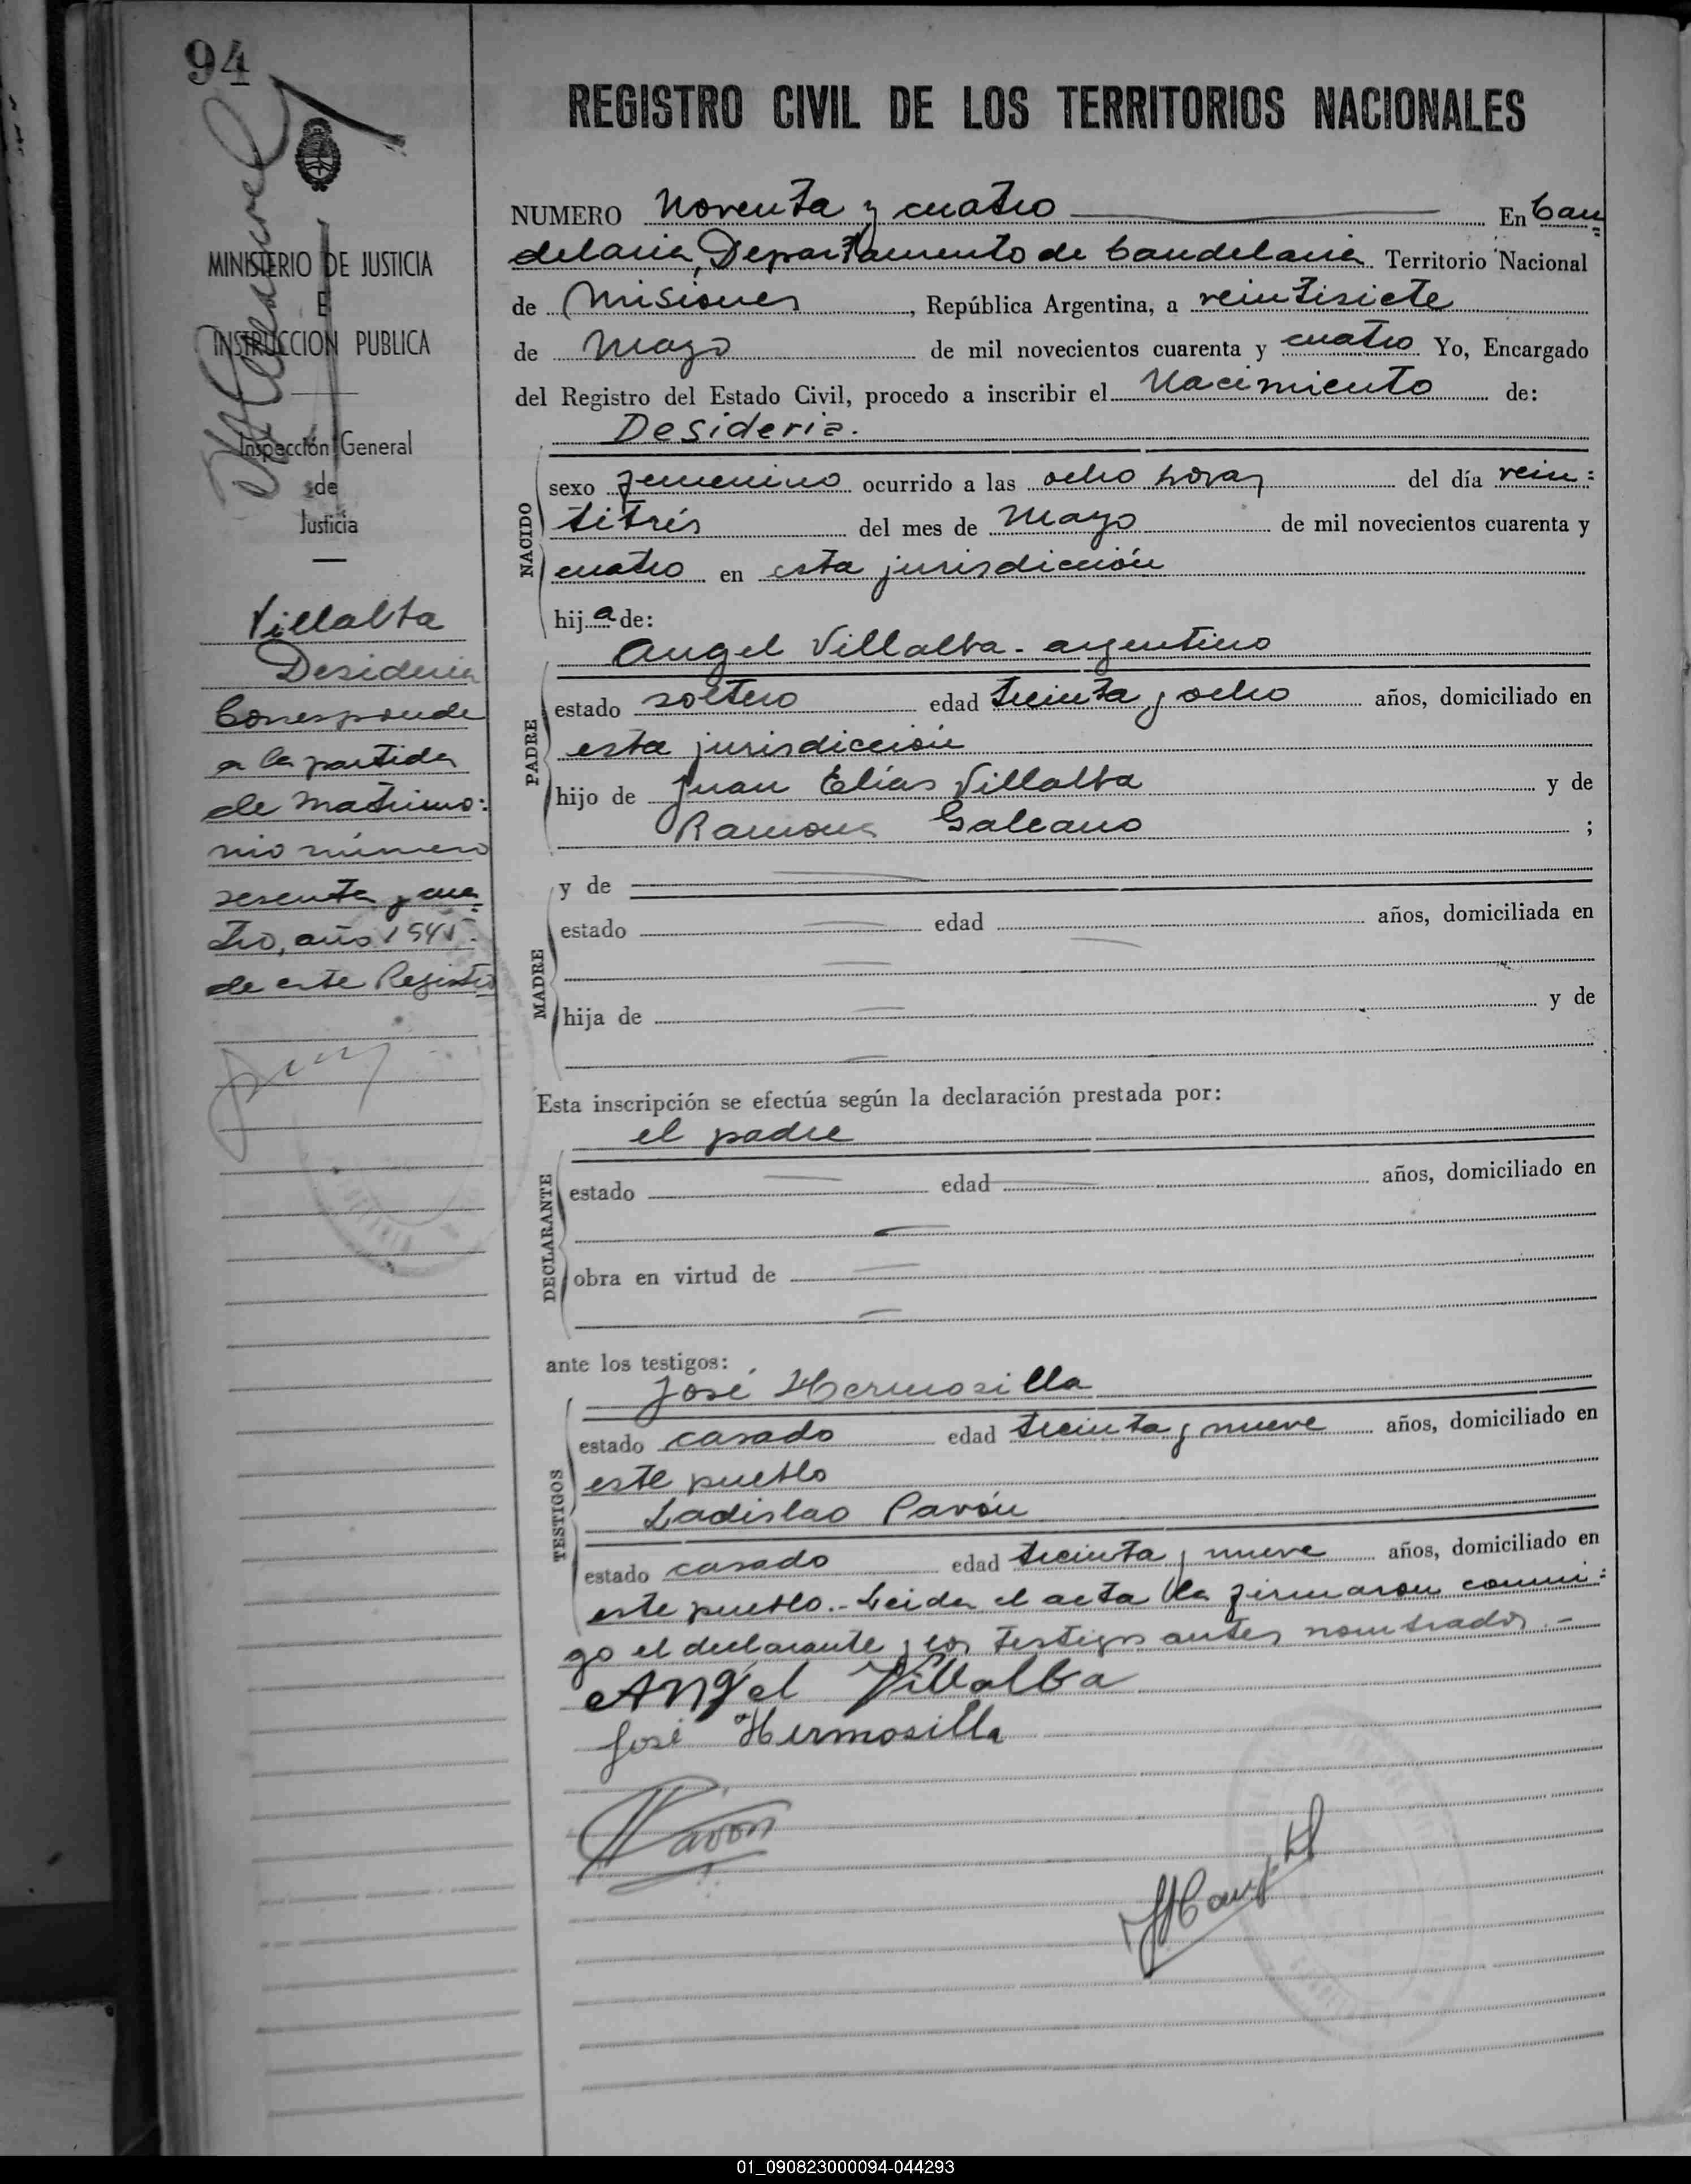 94
REGISTRO CIVIL DE LOS TERRITORIOS NACIONALES
NUMERO Noventa y cuatro En Can=
delaria, Departamento de Candelaria Territorio Nacional
de Misiones, República Argentina, a veintisiete
de Mayo de mil novecientos cuarenta y cuatro Yo, Encargado
del Registro del Estado Civil, procedo a inscribir el Nacimiento de:
Desideria.
NACIDO
sexo femenino ocurrido a las ocho horas del día vein=
titrés del mes de Mayo de mil novecientos cuarenta y
cuatro en esta jurisdicción
hija de:
Angel Villalba - argentino
PADRE
estado soltero edad treinta y ocho años, domiciliado en
esta jurisdicción
hijo de Juan Elías Villalba y de
Ramona Galeano ;
MADRE
y de
estado edad años, domiciliada en
hija de y de
Esta inscripción se efectúa según la declaración prestada por:
el padre
DECLARANTE
estado edad años, domiciliado en
obra en virtud de
ante los testigos:
José Hermosilla
TESTIGOS
estado casado edad treinta y nueve años, domiciliado en
este pueblo
Ladislao Pavón
estado casado edad treinta y nueve años, domiciliado en
este pueblo.- Leida el acta la firmaron conmi=
go el declarante y los testigos antes nombrados.-
Angel Villalba
José Hermosilla
Pavón
MINISTERIO DE JUSTICIA
E
INSTRUCCION PUBLICA
Inspección General
de
Justicia
Villalba
Desideria
Corresponde
a la partida
de matrimo=
nio número
sesenta y cua=
tro, año 1945.
de este Registro
01_090823000094-044293